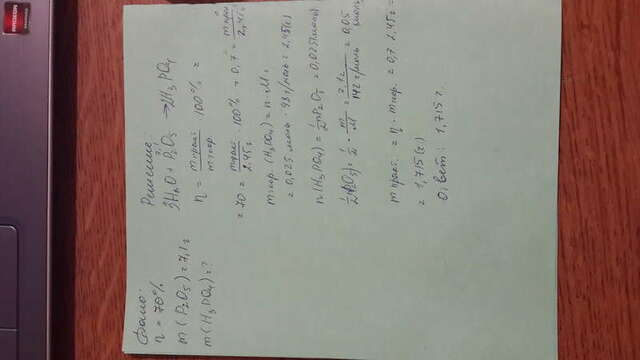 Дано:
η = 70%
m(P₂O₅) = 7,1 г
m(H₃PO₄) = ?
Решение:
7,1
3H₂O + P₂O₅ → 2H₃PO₄
η = mпракт. / mтеор. · 100% =
= 70 = mпракт. / 2,45г · 100% = 0,7 = mпракт / 2,45г
mтеор. (H₃PO₄) = n · M =
= 0,025 моль · 98 г/моль = 2,45(г)
n(H₃PO₄) = 1/2 n P₂O₅ = 0,025(моль)
1/2 n(P₂O₅) = 1/2 · m/M = 7,1г / 142 г/моль = 0,05 моль
mпракт. = η · mтеор. = 0,7 · 2,45г =
= 1,715(г)
Ответ: 1,715 г.
RADEON